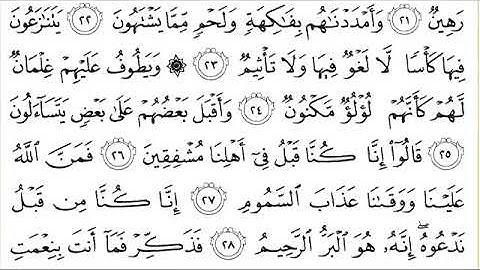 رَهِينٌ ﴿٢١﴾ وَأَمْدَدْنَٰهُم بِفَٰكِهَةٍ وَلَحْمٍ مِّمَّا يَشْتَهُونَ ﴿٢٢﴾ يَتَنَٰزَعُونَ
فِيهَا كَأْسًا لَّا لَغْوٌ فِيهَا وَلَا تَأْثِيمٌ ﴿٢٣﴾ ۞ وَيَطُوفُ عَلَيْهِمْ غِلْمَانٌ
لَّهُمْ كَأَنَّهُمْ لُؤْلُؤٌ مَّكْنُونٌ ﴿٢٤﴾ وَأَقْبَلَ بَعْضُهُمْ عَلَىٰ بَعْضٍ يَتَسَآءَلُونَ
﴿٢٥﴾ قَالُوٓا۟ إِنَّا كُنَّا قَبْلُ فِىٓ أَهْلِنَا مُشْفِقِينَ ﴿٢٦﴾ فَمَنَّ ٱللَّهُ
عَلَيْنَا وَوَقَىٰنَا عَذَابَ ٱلسَّمُومِ ﴿٢٧﴾ إِنَّا كُنَّا مِن قَبْلُ
نَدْعُوهُ ۖ إِنَّهُۥ هُوَ ٱلْبَرُّ ٱلرَّحِيمُ ﴿٢٨﴾ فَذَكِّرْ فَمَآ أَنتَ بِنِعْمَتِ